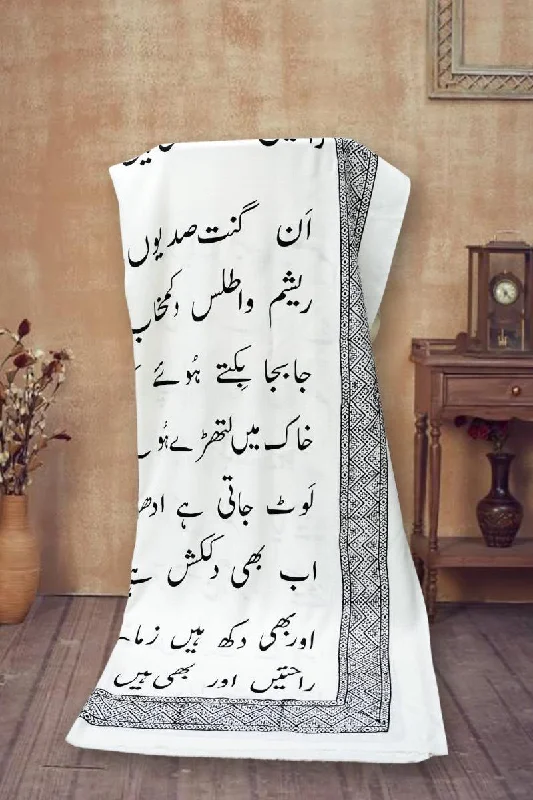 اَن گنت صدیوں
ریشم و اطلس و کمخاب
جا بجا بِکتے ہُوئے
خاک میں لتھڑے ہُو
لَوٹ جاتی ہے ادھ
اب بھی دلکش ہے
اور بھی دکھ ہیں زما
راحتیں اور بھی ہیں